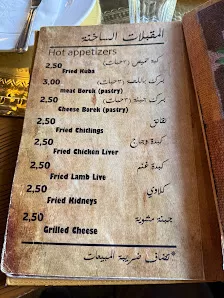 المقبلات الساخنة
Hot appetizers
2,50 Fried Kobs كبه حميص (٣ حبات)
3,00 meat Borek (pastry) برك بـاللحمة (٣ حبات)
2,50 Cheese Borek (pastry) برك جبنة (٣ حبات)
2,50 Fried Chitlings نقانق
2,50 Fried Chicken Liver كبدة دجاج
2,50 Fried Lamb Live كبدة غنم
2,50 Fried Kidneys كلاوي
2,50 Grilled Cheese جبنة مشوية
*تضاف ضريبة المبيعات